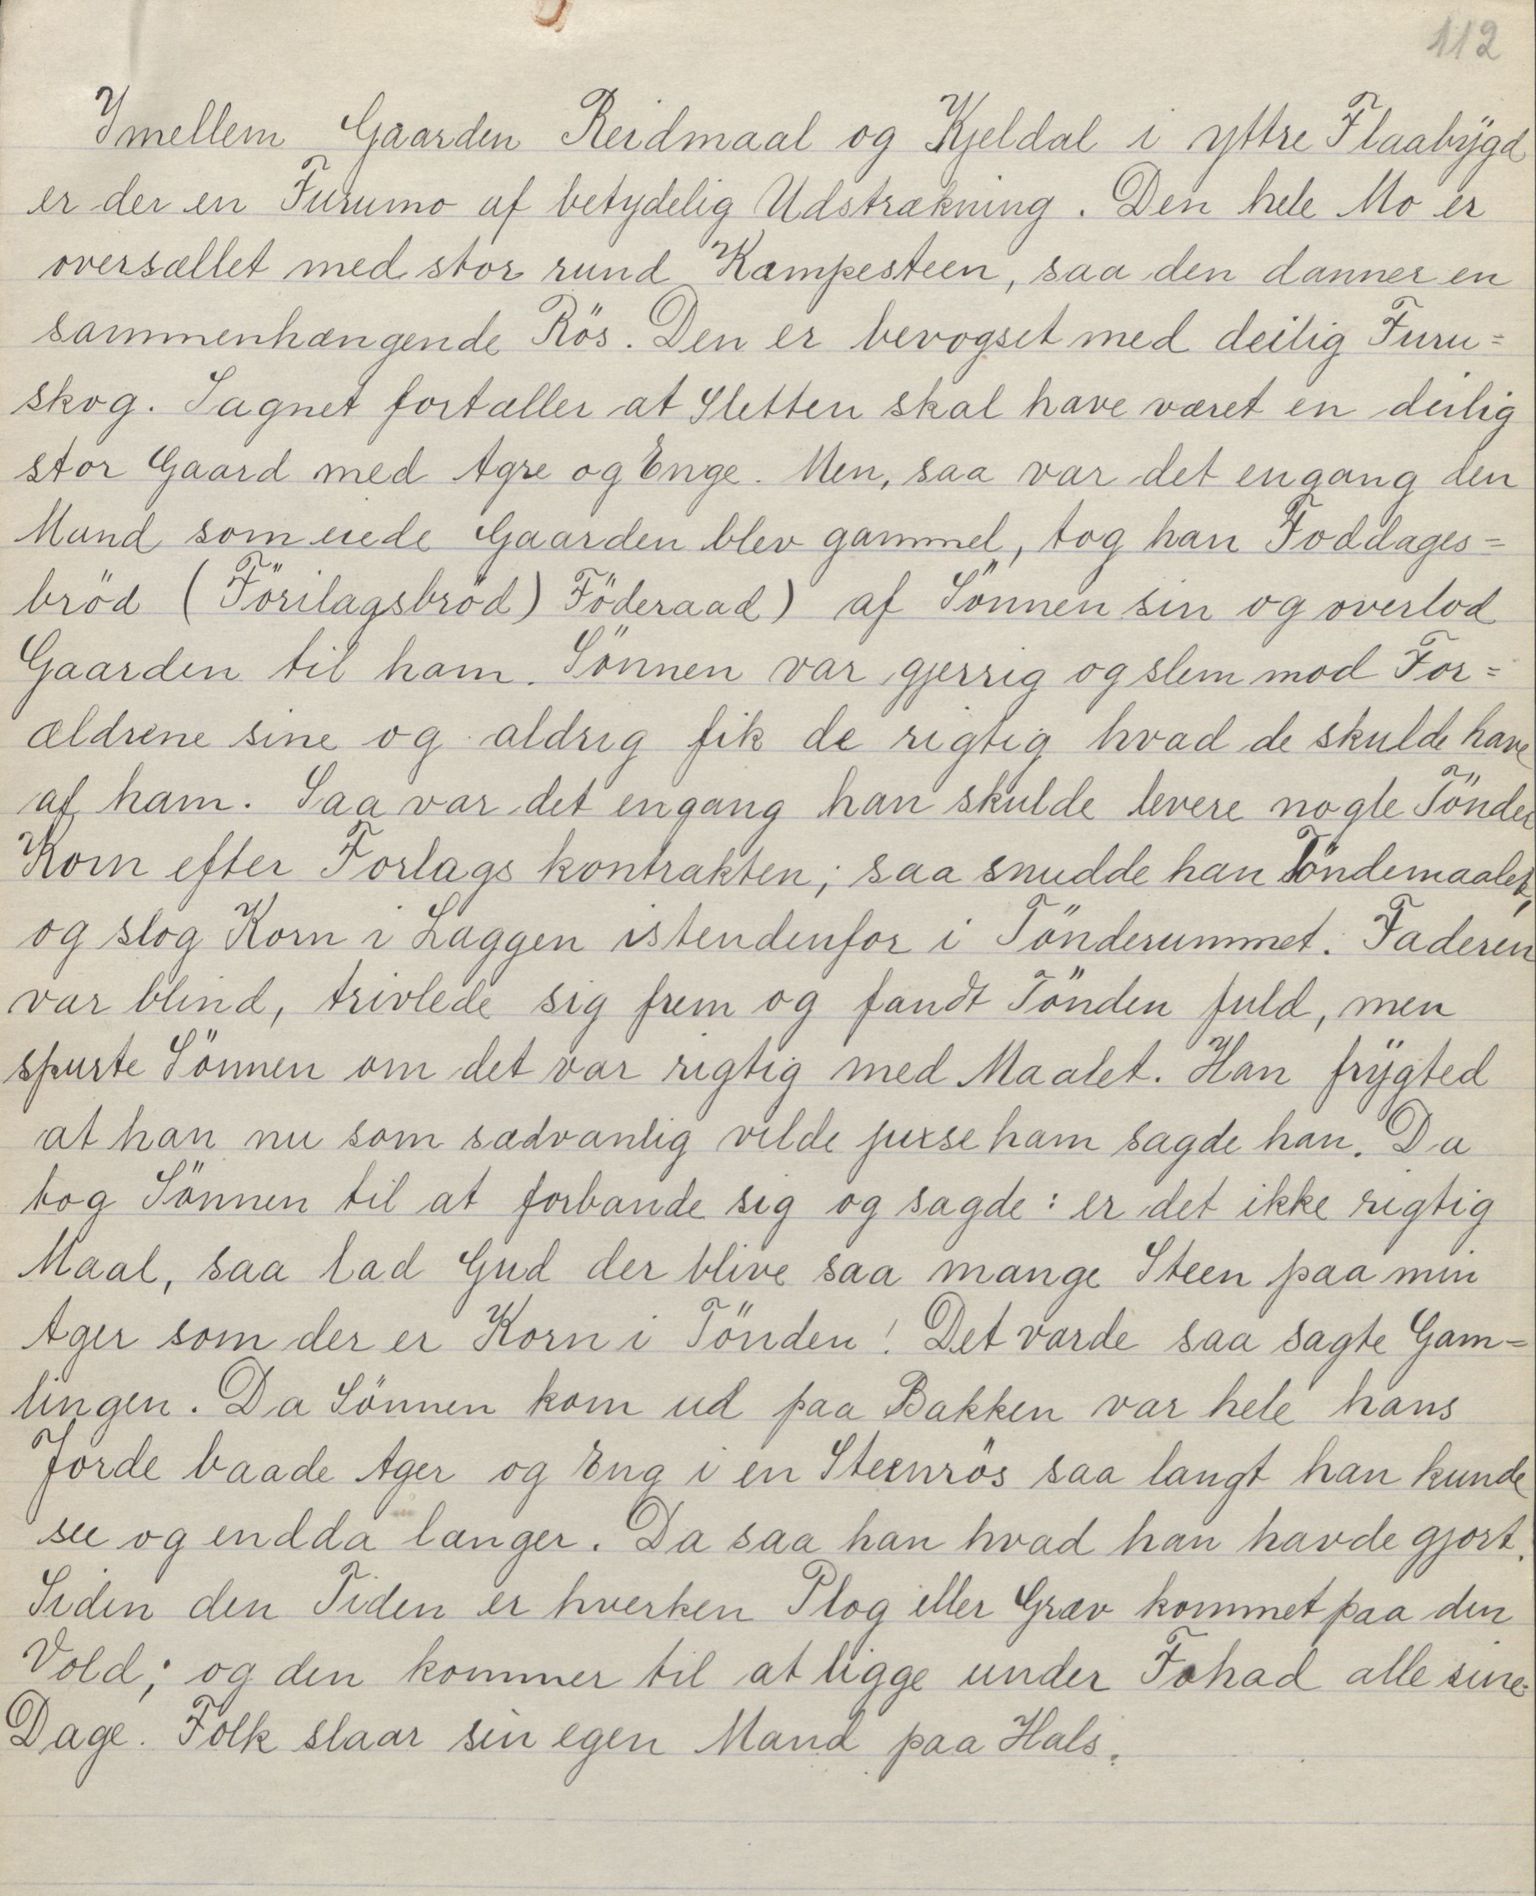 112
Imellem Gaarden Reidmaal og Kjeldal i yttre Flaabÿgd
er der en Furumo af betydelig Udstrækning. Den hele Mo er
oversællet med stor rund Kampesteen, saa den danner en
sammenhængende Rös. Den er bevogset med deilig Furu=
skog. Sagnet fortæller at Sletten skal have været en deilig
stor Gaard med Agre og Enge. Men, saa var det engang den
Mand som eiede Gaarden blev gammel, tog han Foddages=
bröd (Förilagsbröd) Föderaad) af Sönnen sin og overlod
Gaarden til ham. Sönnen var gjerrig og slem mod For=
ældrene sine og aldrig fik de rigtig hvad de skulde have
af ham. Saa var det engang han skulde levere nogle Tönder
Korn efter Forlags kontrakten; saa snudde han Töndemaalet,
og slog Korn i Laggen istendenfor i Tönderummet. Faderen
var blind, trivlede sig frem og fandt Tönden fuld, men
spurte Sönnen om det var rigtig med Maalet. Han frÿgted
at han nu som sædvanlig vilde juxse ham sagde han. Da
tog Sönnen til at forbande sig og sagde: er det ikke rigtig
Maal, saa lad Gud der blive saa mange Steen paa min
Ager som der er Korn i Tönden! Det varde saa sagte Gam=
lingen. Da Sönnen kom ud paa Bakken var hele hans
Jorde baade Ager og Eng i en Steenrös saa langt han kunde
see og endda længer. Da saa han hvad han havde gjort.
Siden den Tiden er hverken Plog eller Græv kommet paa den
Vold; og den kommer til at ligge under Fohad alle sine
Dage. Folk slaar sin egen Mand paa Hals.